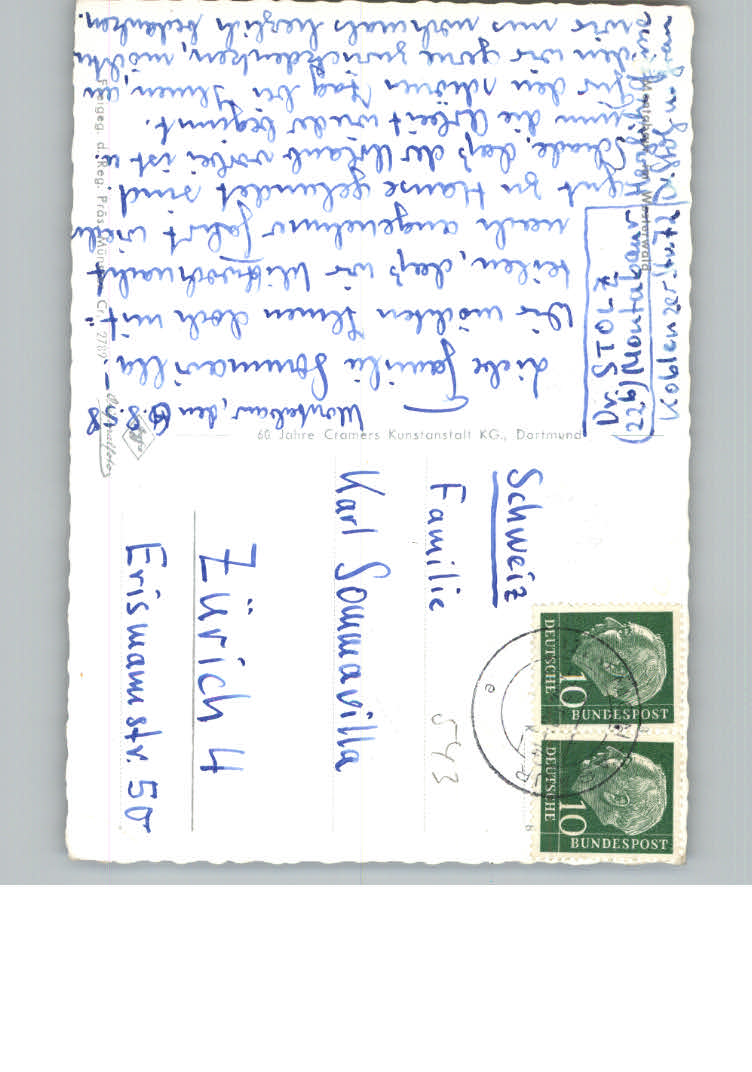 Montabaur, den 6.8.58
Liebe Familie Sommavilla
Wir möchten Ihnen doch mit-
teilen, daß wir Mittwochnacht
nach angenehmer Fahrt wieder
gut zu Hause gelandet sind.
Schade, daß der Urlaub vorbei ist u.
nun die Arbeit wieder beginnt.
Für den schönen Tag bei Ihnen, an
den wir gerne zurückdenken, möchten
wir uns nochmals herzlich bedanken.
Dr. STOLZ
(22b) Montabaur
Koblenzerstr.
Montabaur im Westerwald
60 Jahre Cramers Kunstanstalt KG., Dortmund
Freigeg. d. Reg. Präs. Münster
Agfa
Originalfoto
Schweiz
Familie
Karl Sommavilla
Zürich 4
Erismannstr. 50
543
DEUTSCHE
10
BUNDESPOST
DEUTSCHE
10
BUNDESPOST
e